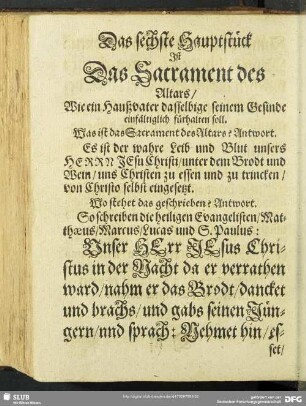 Das sechste Hauptstück
Ist
Das Sacrament des
Altars/
Wie ein Haußvater dasselbige seinem Gesinde
einfältiglich fürhalten soll.
Was ist das Sacrament des Altars? Antwort.
Es ist der wahre Leib und Blut unsers
HERRN JEsu Christi/ unter dem Brodt und
Wein/ uns Christen zu essen und zu trincken/
von Christo selbst eingesetzt.
Wo stehet das geschrieben? Antwort.
So schreiben die heiligen Evangelisten/ Mat-
thæus/ Marcus/ Lucas und S. Paulus:
Unser HErr JEsus Chri-
stus in der Nacht da er verrathen
ward/ nahm er das Brodt/ dancket
und brachs/ und gabs seinen Jün-
gern/ und sprach: Nehmet hin/ es-
set/
SLUB
Wir führen Wissen.
gefördert von der
Deutschen Forschungsgemeinschaft
DFG